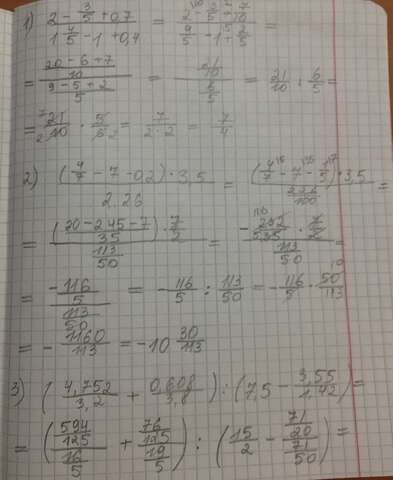 1) (2 - 3/5 + 0,7) / (1 4/5 - 1 + 0,4) = (2 - 3/5 + 7/10) / (9/5 - 1 + 2/5) =
= ((20 - 6 + 7)/10) / ((9 - 5 + 2)/5) = (21/10) / (6/5) = 21/10 : 6/5 =
= 21/10 · 5/6 = 7/(2 · 2) = 7/4
2) ((4/7 - 7 - 0,2) · 3,5) / 2,26 = ((4/7 - 7 - 1/5) · 3,5) / (226/100) =
= ((20 - 245 - 7)/35 · 7/2) / (113/50) = (-232/35 · 7/2) / (113/50) =
= (-116/5) / (113/50) = -116/5 : 113/50 = -116/5 · 50/113
= - 1160/113 = -10 30/113
3) (4,752/3,2 + 0,608/3,8) : (7,5 - 3,55/1,42) =
= ((594/125)/(16/5) + (76/125)/(19/5)) : (15/2 - (71/20)/(71/50)) =